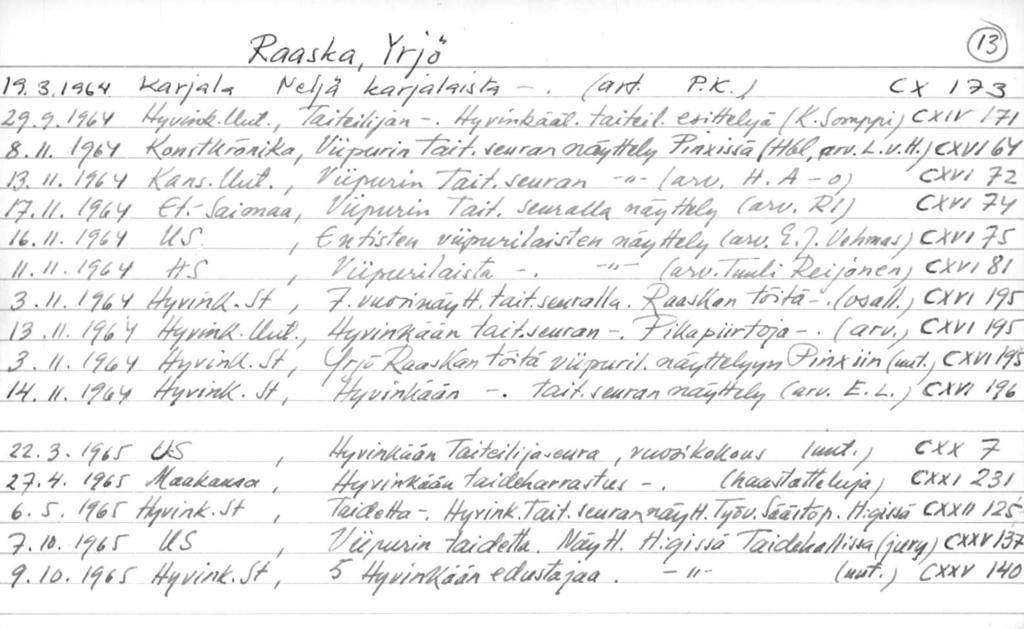 Raaska, Yrjö 13
19.3.1964 Karjala Neljä karjalaista -. (art. P.K.) CX 173
29.9.1964 Hyvink.Uut., Taiteilijan-. Hyvinkääl. taiteil. esittelyä (K.Somppi) CXIV 171
8.11.1964 Konstkrönika, Viipurin Tait.seuran näyttely Pinxissä (Hbl, arv. L.v.H.) CXVI 64
13.11.1964 Kans.Uut., Viipurin Tait.seuran -"- (arv. H.A-o) CXVI 72
17.11.1964 Et.-Saimaa, Viipurin Tait. seuralla näyttely (arv. RI) CXVI 74
16.11.1964 US , Entisten viipurilaisten näyttely (arv. E.J. Vehmas) CXVI 75
11.11.1964 HS , Viipurilaista -. -"- (arv. Tuuli Reijonen) CXVI 81
3.11.1964 Hyvink.St , 7. vuosinäytt. tait.seuralla. Raaskan töitä-. (osall.) CXVI 195
13.11.1964 Hyvink.Uut., Hyvinkään tait.seuran -. Pikapiirtoja -. (arv.) CXVI 195
3.11.1964 Hyvink.St , Yrjö Raaskan töitä viipuril. näyttelyyn Pinxiin (uut.) CXVI 195
14.11.1964 Hyvink.St , Hyvinkään -. tait.seuran näyttely (arv. E.L.) CXVI 196
22.3.1965 US , Hyvinkään Taiteilijaseura, vuosikokous (uut.) CXX 7
27.4.1965 Maakansa , Hyvinkään taideharrastus -. (haastatteluja) CXXI 231
6.5.1965 Hyvink.St , Taidetta-. Hyvink.Tait.seuran näytt. Työv.Säästöp. H:gissä CXXII 125
7.10.1965 US , Viipurin taidetta. Näytt. H:gissä Taidehallissa (jury) CXXV 137
9.10.1965 Hyvink.St , 5 Hyvinkään edustajaa. -"- (uut.) CXXV 140